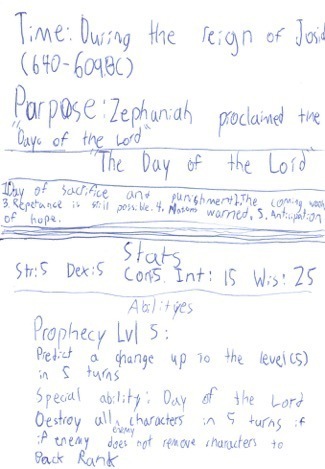 Time: During the reign of Josi
(640-609BC)
Parpose: Zephaniah proclaimed the
"Days of the Lord"
"The Day of the Lord"
1Day of sacrifice and punishment2.The coming
3.Repetance is still possible.4. warned, 5. Anticipation
of hope.
Stats
Str:5 Dex:5 Con:5 Int: 15 Wis: 25
Abilityes
Prophecy Lvl 5:
Predict a change up to the level(5)
in 5 turns
Special ability: Day of the Lord
Destroy all enemy characters in 5 turns if
if enemy does not remove characters to
Back Rank